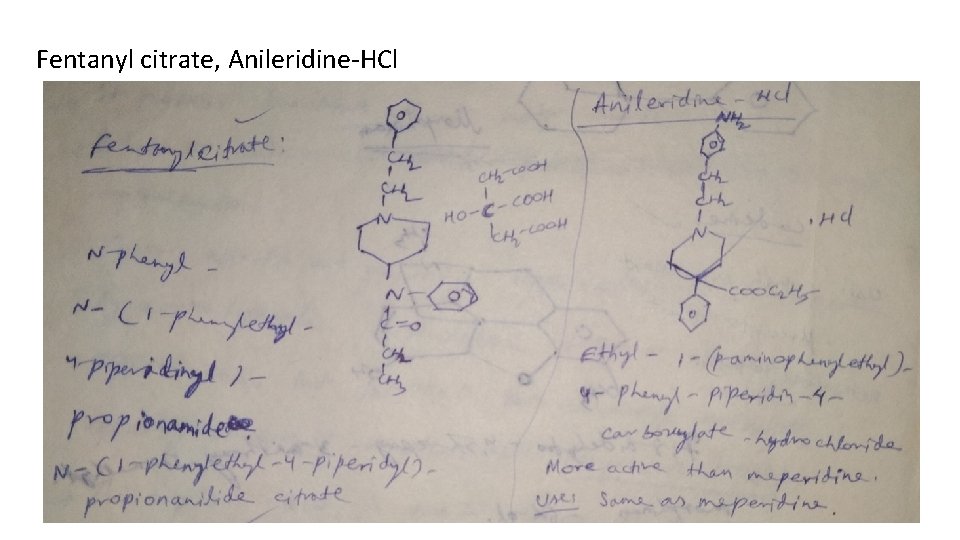 Fentanyl citrate, Anileridine-HCl
Fentanyl citrate:
CH2
CH2
N
N
C=O
CH2
CH3
CH2-COOH
HO-C-COOH
CH2-COOH
N-phenyl -
N- (1-phenylethyl -
4-piperidinyl) -
propionamide.
N-(1-phenylethyl-4-piperidyl)-
propionanilide citrate
Anileridine - HCl
NH2
CH2
CH2
N
. HCl
COOC2H5
Ethyl - 1-(p-aminophenylethyl)-
4- phenyl - piperidin-4-
carboxylate - hydrochloride
More active than meperidine.
Uses same as meperidine.